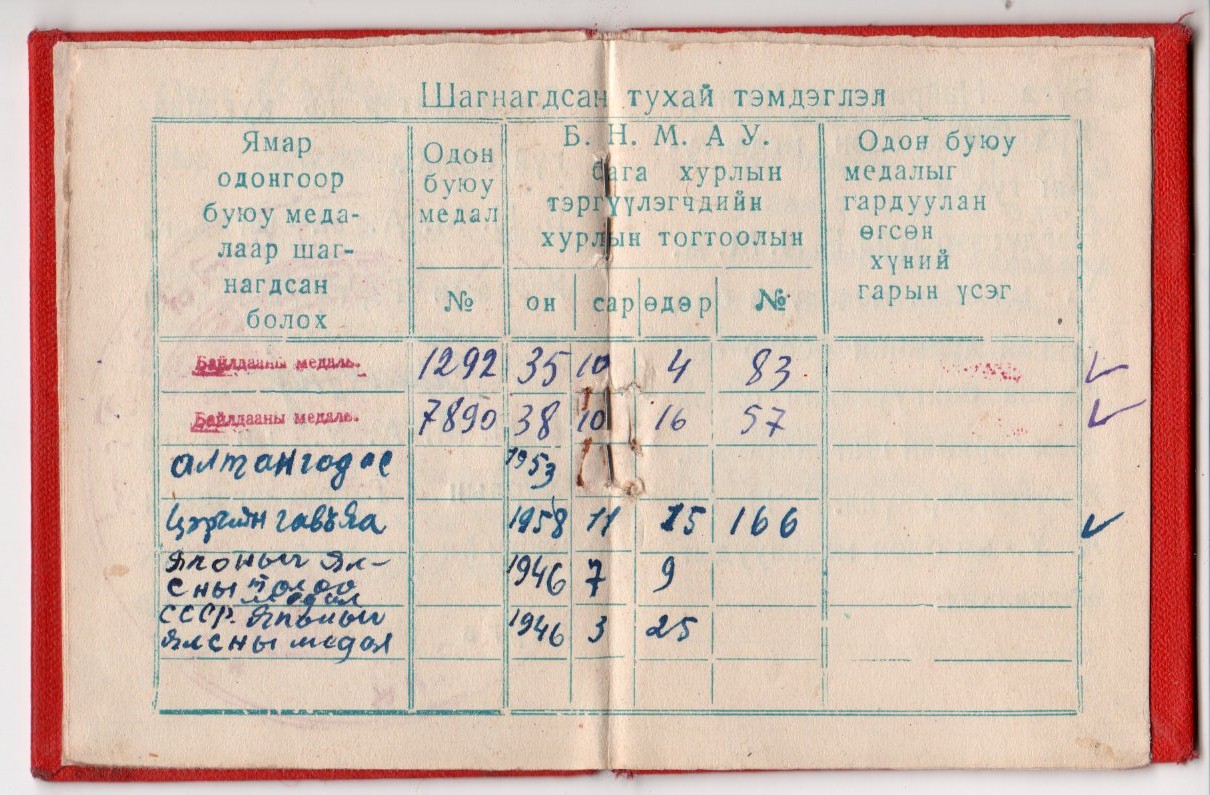 Шагнагдсан тухай тэмдэглэл
Ямар
одонгоор
буюу меда-
лаар шаг-
нагдсан
болох
Одон
буюу
медал
№
Б. Н. М. А У.
бага хурлын
тэргүүлэгчдийн
хурлын тогтоолын
он сар өдөр №
Одон буюу
медалыг
гардуулан
өгсөн
хүний
гарын үсэг
Байлдааны медаль. 1292 35 10 4 83
Байлдааны медаль. 7890 38 10 16 57
алтангадас 1953
1958 11 25 166
Японыг Ял- 1946 7 9
сны
СССР. Японыг 1946 3 25
Ялсны медал